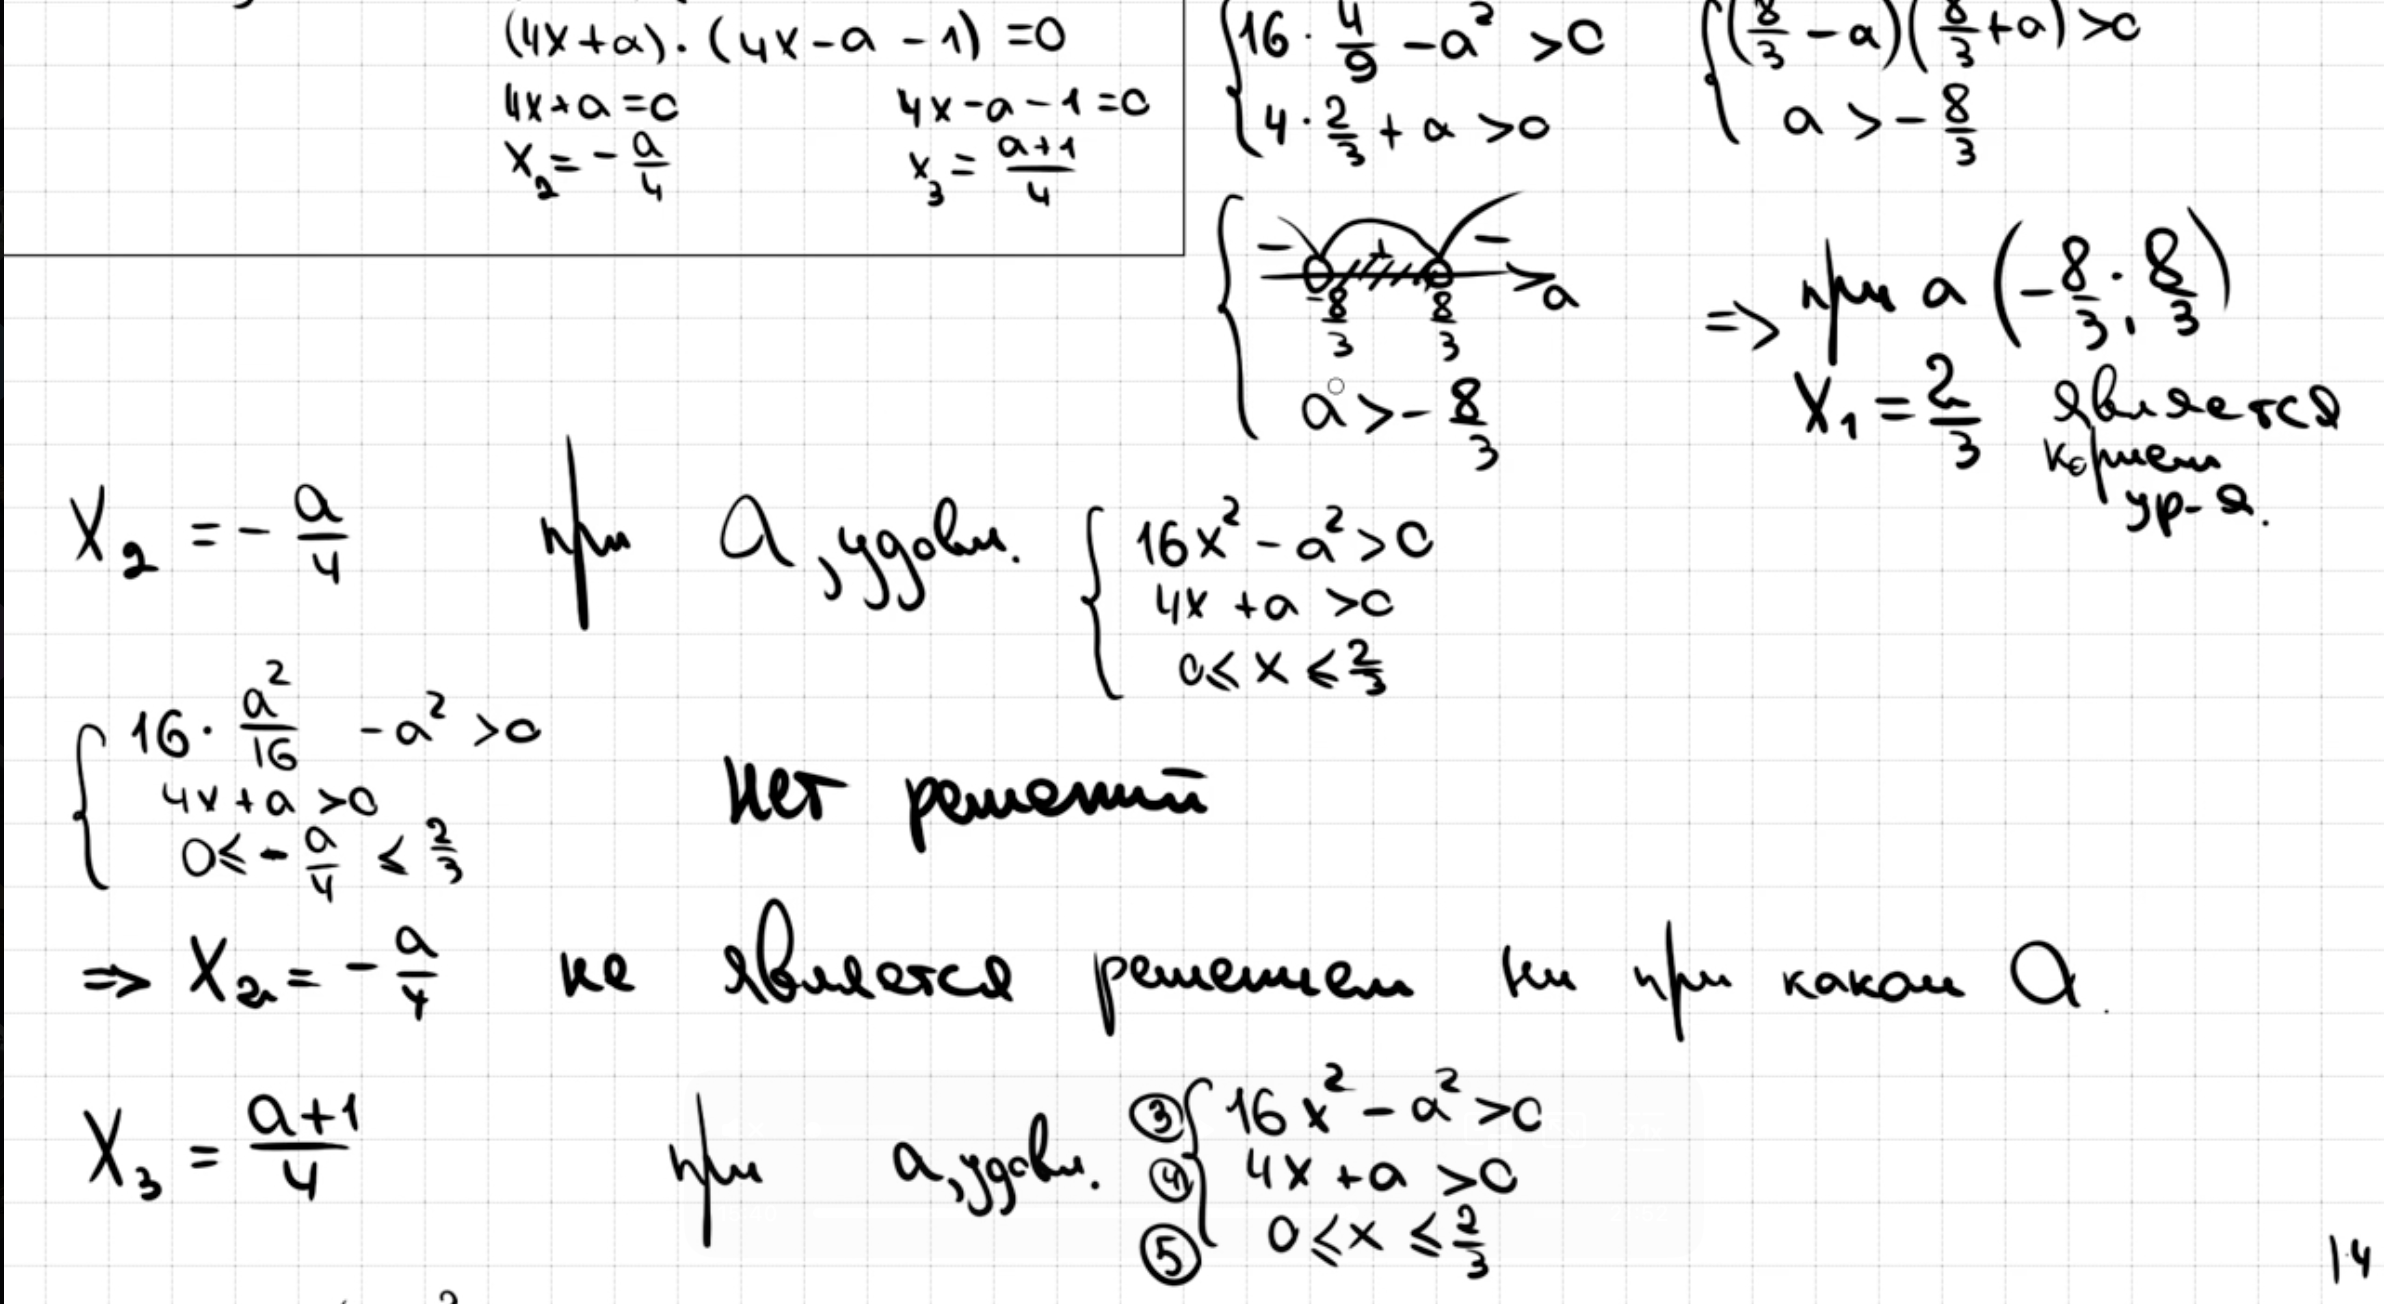 (4x+a)·(4x-a-1)=0
4x+a=0
4x-a-1=0
x₂=-a/4
x₃=(a+1)/4
{16·4/9-a²>0
4·2/3+a>0
{(8/3-a)(8/3+a)>0
a>-8/3
{- + -
-8/3 8/3 a
a>-8/3
=> при a (-8/3; 8/3)
x₁=2/3 является
корнем
ур-я.
x₂=-a/4 при a, удовл. {16x²-a²>0
4x+a>0
0≤x≤2/3
{16·a²/16-a²>0
4x+a>0
0≤-a/4≤2/3
нет решений
=> x₂=-a/4 не является решением ни при каком a.
x₃=(a+1)/4 при a, удовл. ③{16x²-a²>0
④ 4x+a>0
⑤ 0≤x≤2/3
14